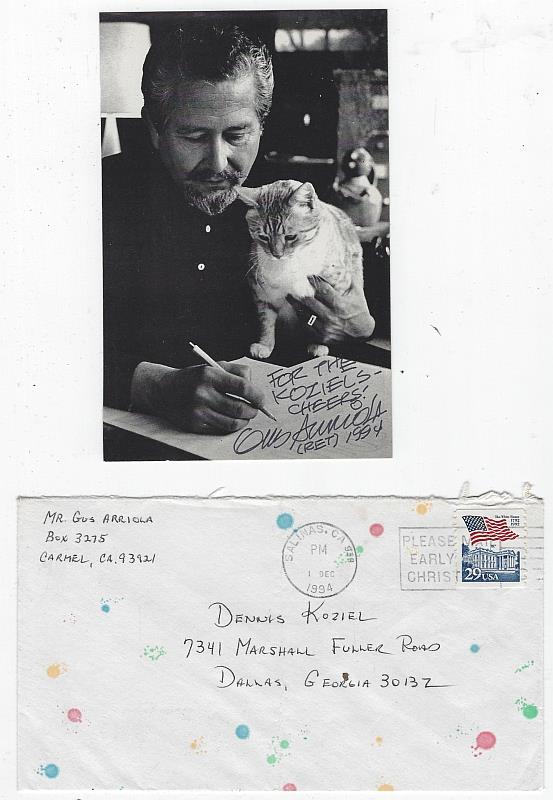 FOR THE
KOZIELS-
CHEERS!
Gus Arriola
(RET) 1994
MR. GUS ARRIOLA
BOX 3275
CARMEL, CA. 93921
SALINAS, CA 939
PM
1 DEC
1994
PLEASE MAIL
EARLY
CHRIST
The White House
1792
1992
29 USA
DENNIS KOZIEL
7341 MARSHALL FULLER ROAD
DALLAS, GEORGIA 30132